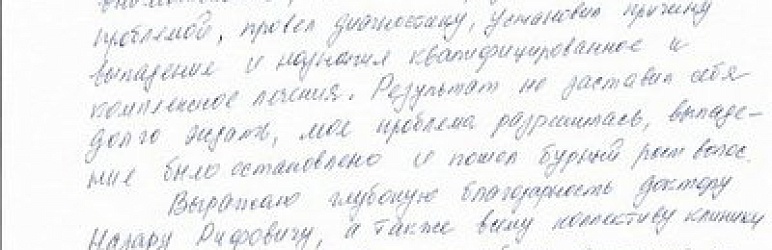 проблемой, провел диагностику, установил причину
выпадение и назначил квалифицированное и
комплексное лечения. Результат не заставил себя
долго ждать, моя проблема разрешилась, выпаде-
ние было остановлено и пошел бурный рост волос.
Выражаю глубокую благодарность доктору
Назару Рифовичу, а также всему коллективу клиники